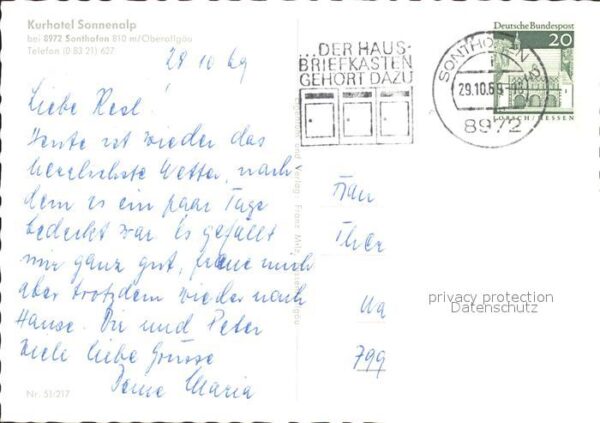 Kurhotel Sonnenalp
bei 8972 Sonthofen 810 m/Oberallgäu
Telefon (0 83 21) 627
29 10 69
Liebe Resl!
Heute ist wieder das
herrlichste Wetter, nach-
dem es ein paar Tage
bedeckt war. Es gefällt
mir ganz gut, freue mich
aber trotzdem wieder nach
Hause. Dir und Peter
viele liebe Grüsse
Deine Maria
Nr. 51/217
...DER HAUS-
BRIEFKASTEN
GEHÖRT DAZU
SONTHOFEN
29.10.69
8972
Deutsche Bundespost
20
LORSCH/HESSEN
und Verlag Franz Milz
Frau
Ther
Wa
799
privacy protection
Datenschutz